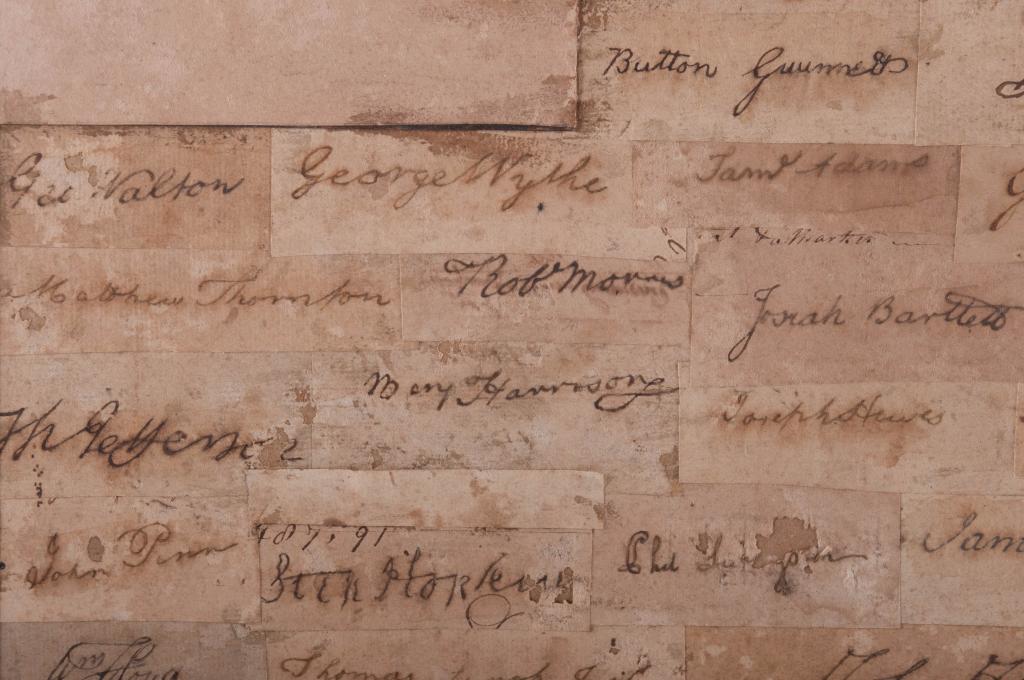 Button Gwinnett
Geo Walton
George Wythe
Saml Adams
Matthew Thornton
Robt Morris
Josiah Bartlett
Benj Harrison
Joseph Hewes
Th Jefferson
John Penn
187,91
Step Hopkins
Phil Livingston
Jam
Thomas